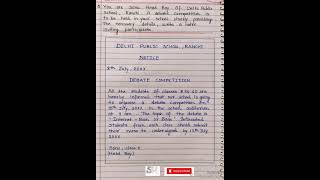 You are Sonu Head Boy Of Delhi Public
School, Ranchi A debate Competition is
to be held in your school shortly providing
the necessary details, write a notice
inviting participants.
DELHI PUBLIC SCHOOL, RANCHI
NOTICE
8th July, 20XX
DEBATE COMPETITION
All the students of classes to are
hereby informed that our school is going
to organise a debate competition on
15th July, 20XX in the school auditorium
at 9 am. The topic of the debate is
"Internet - Boon or Bane" Interested
students from each class should submit
their name to undersigned by 12th July
20XX
Sonu, class X
(Head Boy)
SUBSCRIBE